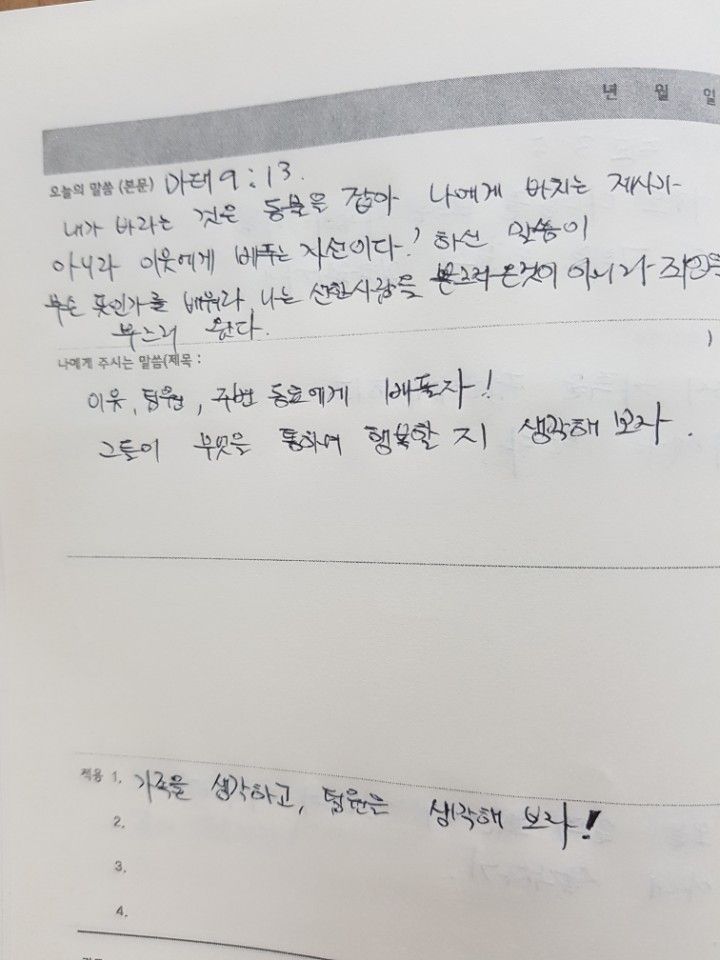 년 월 일
오늘의 말씀 (본문) 마태 9:13.
내가 바라는 것은 동물을 잡아 나에게 바치는 제사가
아니라 이웃에게 배푸는 자선이다.' 하신 말씀이
무슨 뜻인가를 배워라 나는 선한사람을 온것이 아니라 죄인을
부르러 왔다.
나에게 주시는 말씀(제목 : )
이웃, 팀원, 주변 동료에게 배풀자!
그들이 무엇을 통하여 행복할 지 생각해 보자.
적용 1. 가족을 생각하고, 팀원을 생각해 보자!
2.
3.
4.